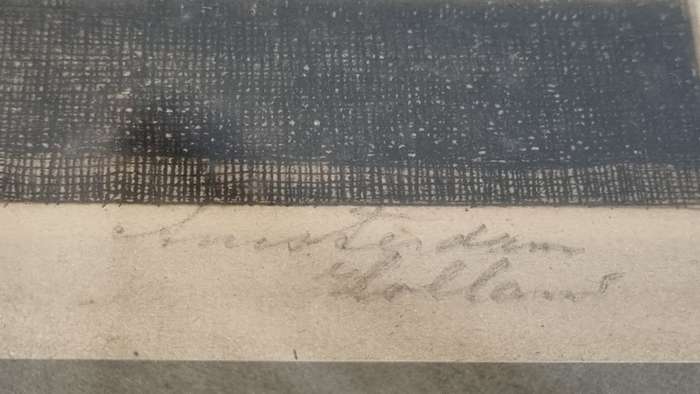 Amsterdam
Holland